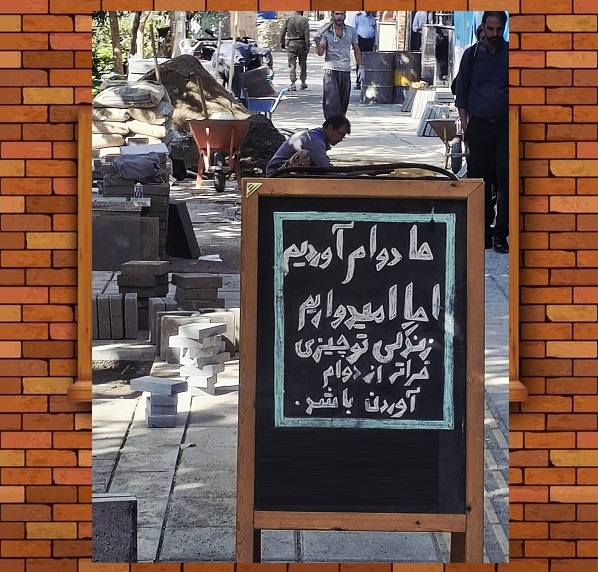 ما دوام آوردیم
اما امیدواریم
زندگی تو چیزی
فراتر از دوام
آوردن باشد.